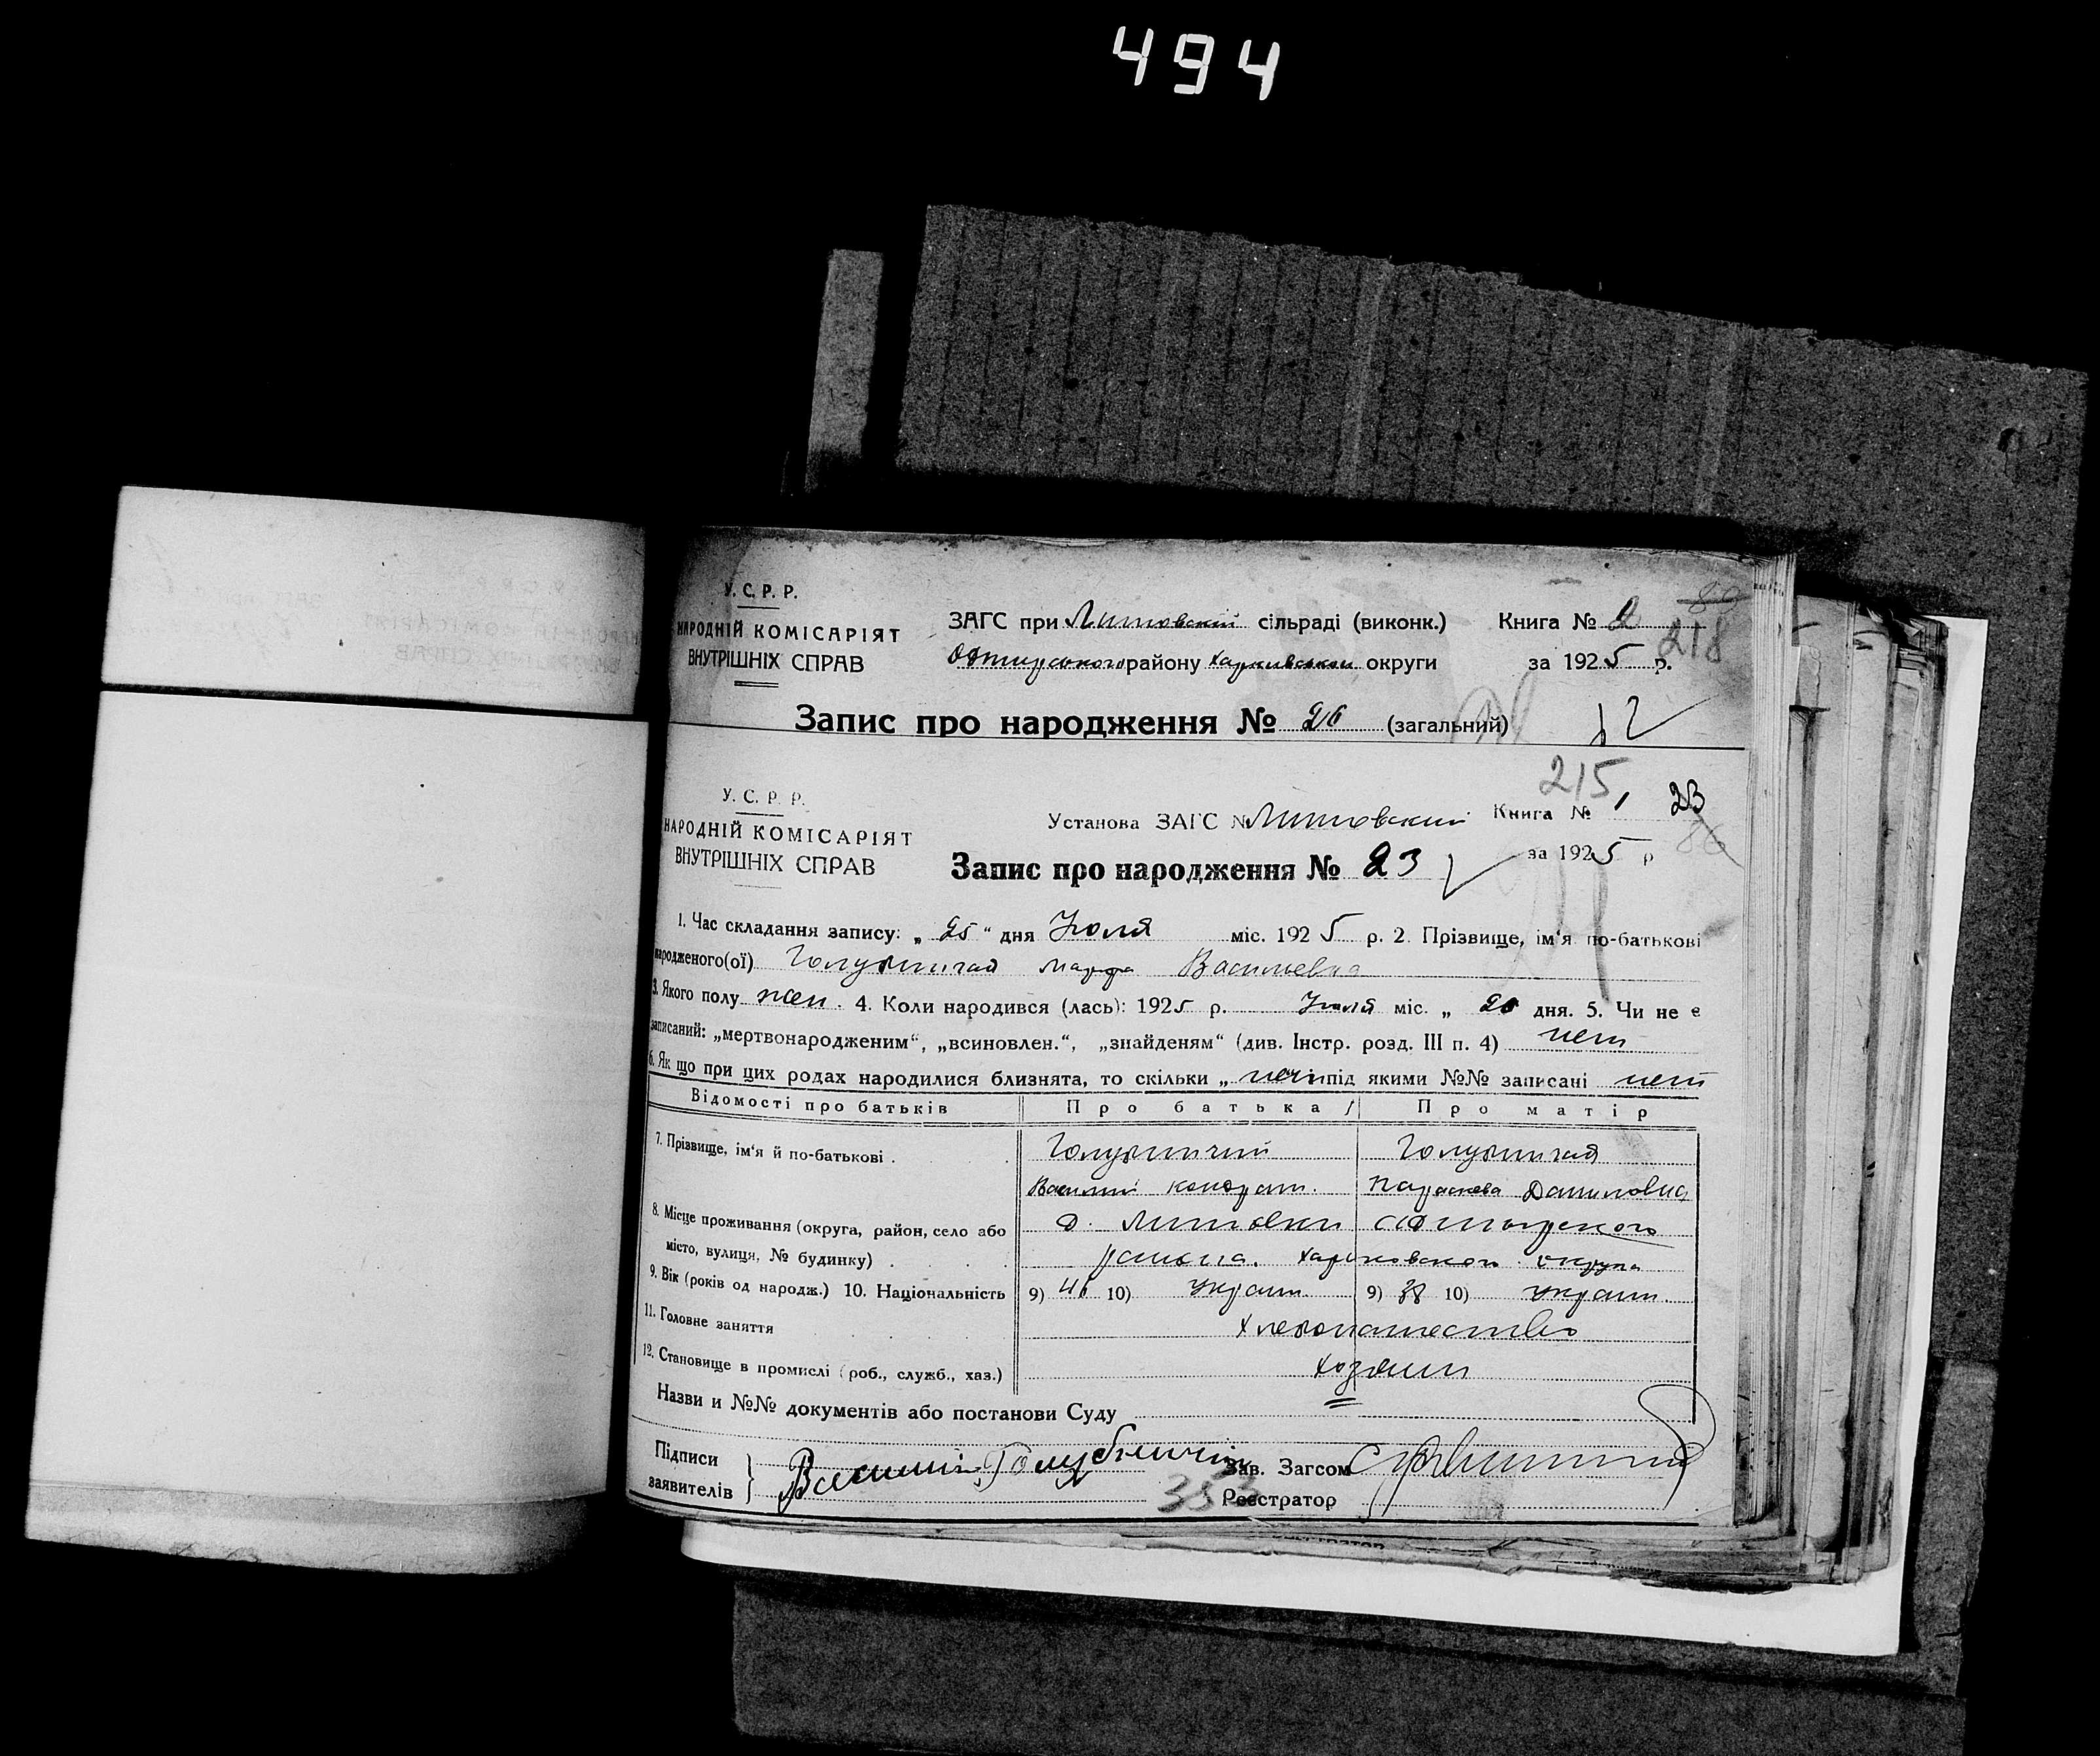 494
У. С. Р. Р.
НАРОДНІЙ КОМІСАРІЯТ
ВНУТРІШНІХ СПРАВ
ЗАГС при Литовский сільраді (виконк.) Книга № 2
218
района Харкивськои округи за 1925 р.
Запис про народження № 26 (загальний)
215
У. С. Р. Р.
НАРОДНІЙ КОМІСАРІЯТ
ВНУТРІШНІХ СПРАВ
Установа ЗАГС № Литовский Книга № 1 23
86
Запис про народження № 23 за 1925 р
1. Час скла­дання запису: „ 25 “ дня Июля міс. 1925 р. 2. Прізвище, ім‘я по-батькові
народженого(ої) Голубничая Марфа Васильевна
3. Якого полу жен. 4. Коли народився (лась): 1925 р. Июля міс. „ дня. 5. Чи не є
записаний: „мертвонародженим“, „всиновлен.“, „знайденям“ (див. Інстр. розд. III п. 4) нет
6. Як що при цих родах народилися близнята, то скільки „ під якими №№ записані нет
Відомості про батьків Про батька Про матір
7. Прізвище, ім‘я й по-батькові . Голубничий Голубничая
Василий кондрат. Параскева Даниловна
8. Місце проживання (округа, район, село або
місто, вулиця, № будинку) . . . .
Литовки
района. Харьковского округа
9. Вік (років од народж.) 10. Національність 9) 46 10) Украин. 9) 38 10) украин.
11. Головне заняття хлебопашество
12. Становище в промислі (роб., служб., хаз.) хозяин
Назви и №№ документів або постанови Суду
Підписи
заявителів
Василий Голубничий
Зав. Загсом
353
Реєстратор